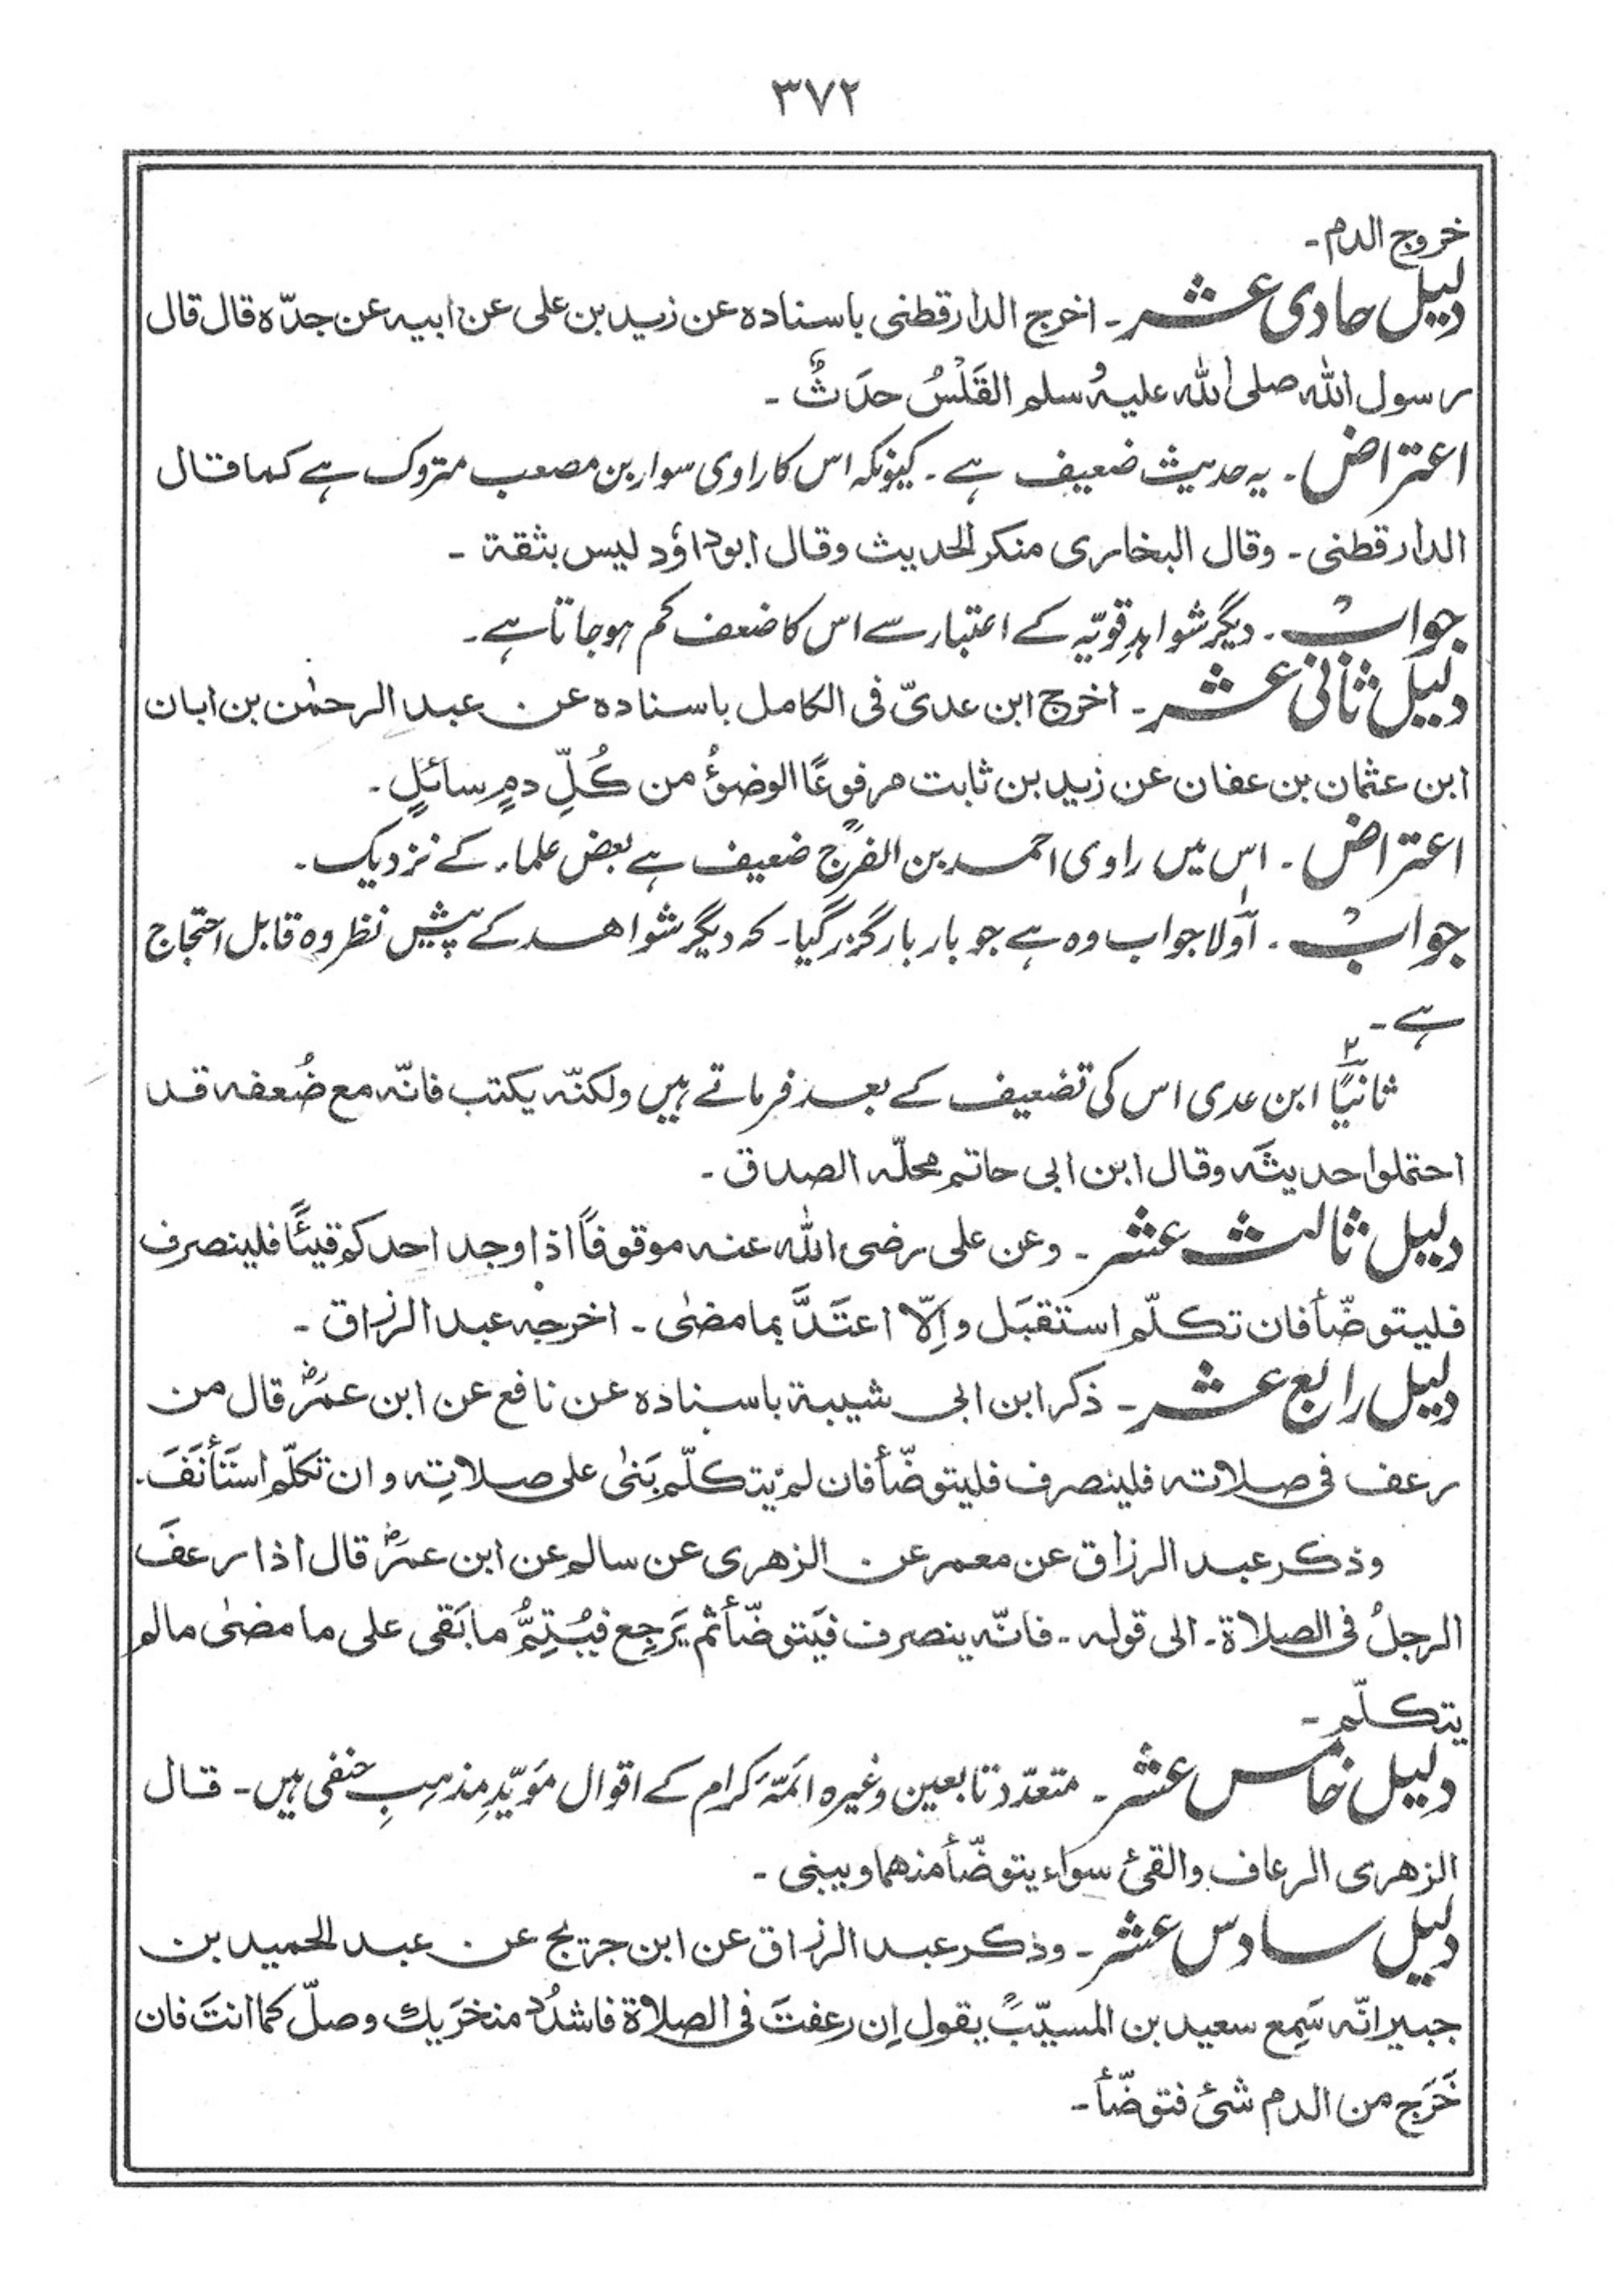 ۳۷۲
خروج الدم۔
دلیل حادی عشر۔ اخرج الدارقطنی باسنادہ عن زید بن علی عن ابیہ عن جدّہ قال قال
رسول اللہ صلی اللہ علیہ وسلم القَلْسُ حدَثٌ۔
اعتراض۔ یہ حدیث ضعیف ہے۔ کیونکہ اس کا راوی سوار بن مصعب متروک ہے کما قال
الدارقطنی۔ وقال البخاری منکر الحدیث وقال ابو داؤد لیس بثقة۔
جواب۔ دیگر شواہدِ قویّہ کے اعتبار سے اس کا ضعف کم ہو جاتا ہے۔
دلیل ثانی عشر۔ اخرج ابن عدیّ فی الکامل باسنادہ عن عبد الرحمٰن بن ابان
ابن عثمان بن عفان عن زید بن ثابت مرفوعًا الوضؤُ من کُلِّ دمٍ سائلٍ۔
اعتراض۔ اس میں راوی احمد بن الفرج ضعیف ہے بعض علماء کے نزدیک۔
جواب۔ اَوّلا جواب وہ ہے جو بار بار گزر گیا۔ کہ دیگر شواھد کے پیش نظر وہ قابل احتجاج
ہے۔
ثانیًا ابن عدی اس کی تضعیف کے بعد فرماتے ہیں ولکنّہ یکتب فانّہ مع ضُعفہ قد
احتملوا حدیثَہ وقال ابن ابی حاتم محلّہ الصدق۔
دلیل ثالث عشر۔ وعن علی رضی اللہ عنہ موقوفًا اذا وجد احدکم قیئًا فلینصرف
فلیتوضّأ فان تکلّم استقبَل وإلّا اعتَدَّ بما مضٰی۔ اخرجہ عبد الرزاق۔
دلیل رابع عشر۔ ذکر ابن ابی شیبة باسنادہ عن نافع عن ابن عمرؓ قال من
رعف فی صلاتہ فلینصرف فلیتوضّأ فان لم یتکلّم بَنٰی علی صلاتِہ وان تکلّم استَأنَفَ۔
وذکر عبد الرزاق عن معمر عن الزھری عن سالم عن ابن عمرؓ قال اذا رعفَ
الرجلُ فی الصلاة۔ الی قولہ۔ فانّہ ینصرف فیَتوضّأ ثم یَرجِع فیُتِمُّ ما بَقی علی ما مضٰی مالم
یتکلّم۔
دلیل خامس عشر۔ متعدّد تابعین وغیرہ ائمّۂ کرام کے اقوال مؤیّدِ مذہبِ حنفی ہیں۔ قال
الزھری الرعاف والقئ سواء یتوضّأ منھما ویبنی۔
دلیل سادس عشر۔ وذکر عبد الرزاق عن ابن جریج عن عبد الحمید بن
جبیر انّہ سَمِع سعید بن المسیّبؒ یقول اِن رعفتَ فی الصلاة فاشدُد منخرَیك وصلّ کما انتَ فان
خَرَج من الدم شئ فتوضّأ۔